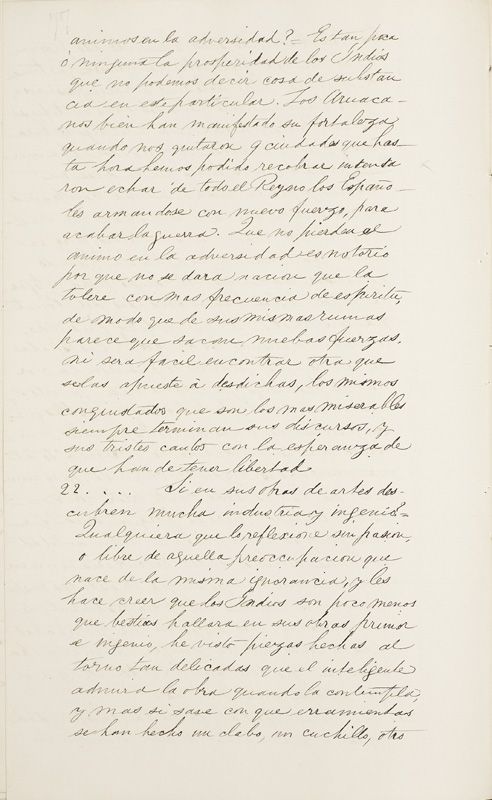 animos en la adversidad? = Es tan poca
ó ninguna la prosperidad de los Indios
que no podemos decir cosa de substan
cia en este particular. Los Aruaca-
nos bien han manifestado su fortaleza
quando nos quitaron 9 ciudades que has-
ta hora hemos podido recobrar intenta
ron echar de todo el Reyno los Españo-
les armandose con nuevo fuerzo, para
acabar la guerra. Que no pierdan el
animo en la adversidad es notorio
por que no se dara nacion que la
tolere con mas frecuencia de espiritu,
de modo que de sus mismas ruinas
parece que sacan nuebas fuerzas.
ni sera facil encontrar otra que
selas apueste á desdichas, los mismos
conquistados que son los mas miserables
siempre terminan sus discursos, y
sus tristes cantos con la esperanza de
que han de tener libertad
22. . . . . Si en sus obras de artes des-
cubren mucha industria y ingenio? =
Qualquiera que lo reflexione sin pasion,
o libre de aquella preocupacion que
nace de la misma ignorancia, y les
hace creer que los Indios son poco menos
que bestias hallara en sus obras primor
e ingenio, he visto piezas hechas al
torno tan delicadas que el inteligente
admira la obra quando la contempla,
y mas si save con que erramientas
se han hecho un clabo, un cuchillo, otro